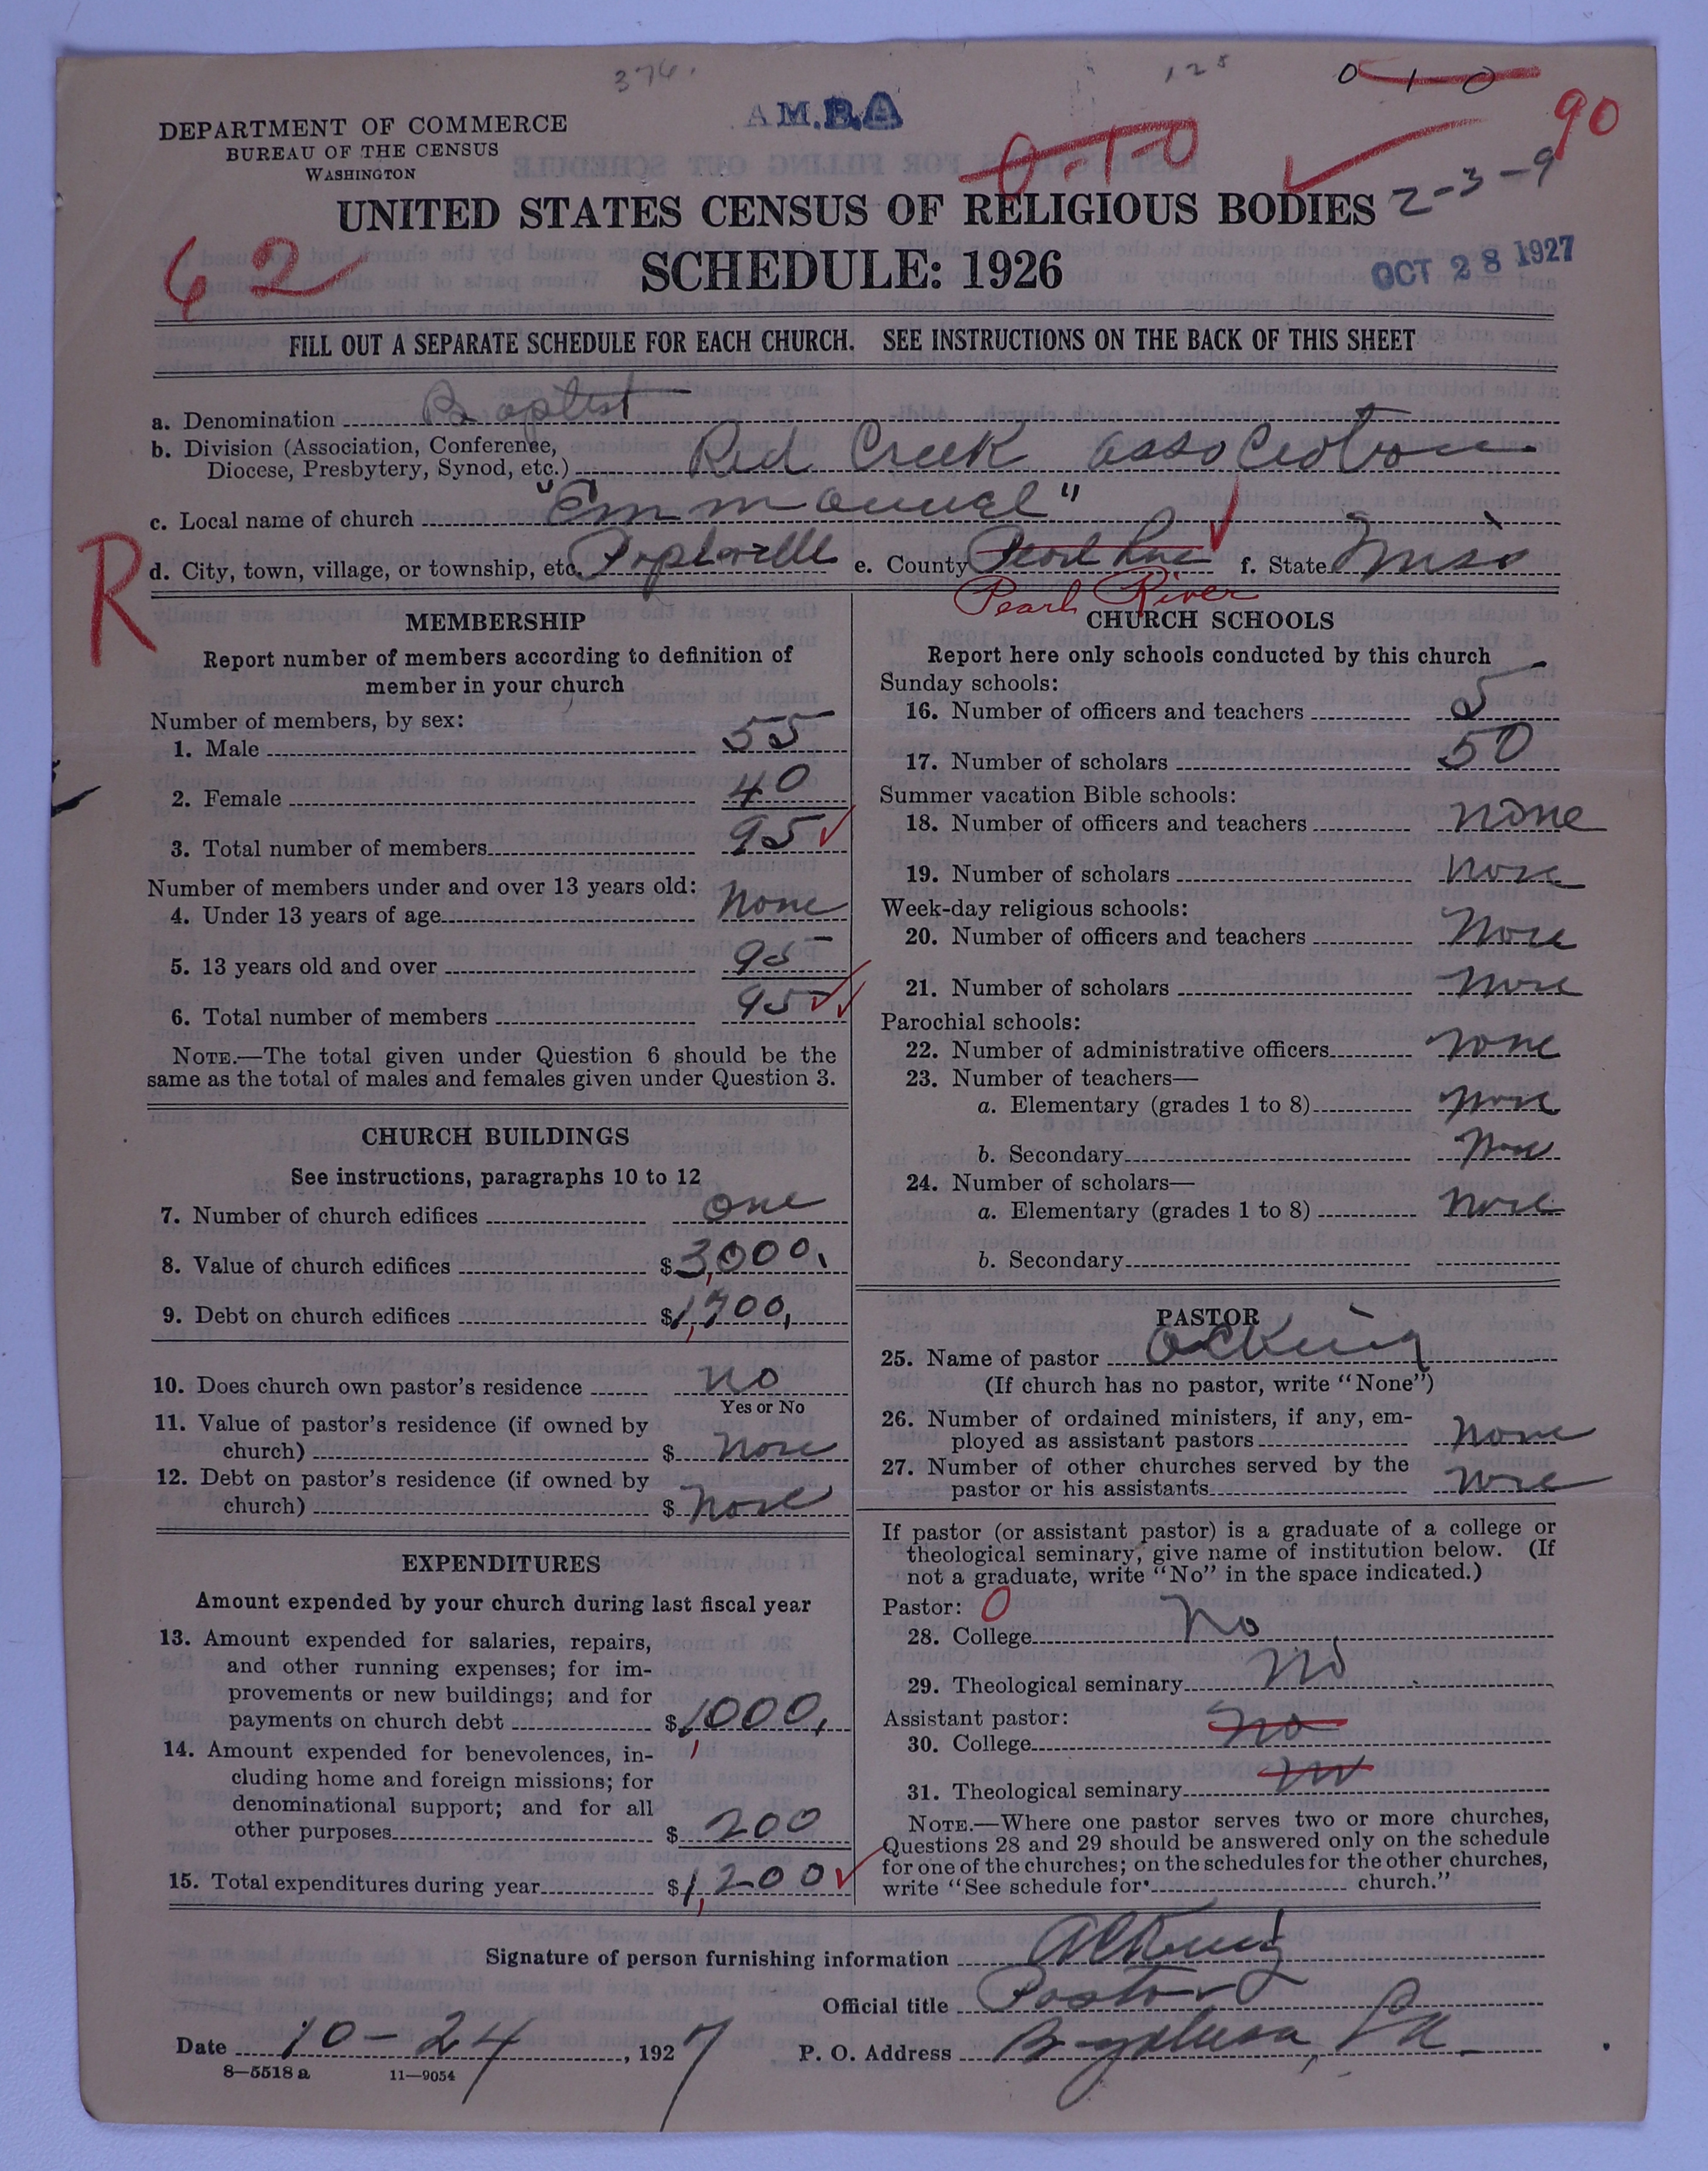 376. 128 0-1-0
A M.B.A
90
DEPARTMENT OF COMMERCE
BUREAU OF THE CENSUS
WASHINGTON
0-1-0
2-3-9
UNITED STATES CENSUS OF RELIGIOUS BODIES
62
SCHEDULE: 1926
OCT 28 1927
FILL OUT A SEPARATE SCHEDULE FOR EACH CHURCH. SEE INSTRUCTIONS ON THE BACK OF THIS SHEET
a. Denomination Baptist
b. Division (Association, Conference,
Diocese, Presbytery, Synod, etc.) Red Creek association
c. Local name of church "Emmanuel"
R
d. City, town, village, or township, etc. Poplarville e. County Pearl River f. State Miss
Pearl River
MEMBERSHIP
Report number of members according to definition of
member in your church
Number of members, by sex:
1. Male 55
2. Female 40
3. Total number of members 95
Number of members under and over 13 years old:
4. Under 13 years of age none
5. 13 years old and over 95
6. Total number of members 95
NOTE.—The total given under Question 6 should be the
same as the total of males and females given under Question 3.
CHURCH BUILDINGS
See instructions, paragraphs 10 to 12
7. Number of church edifices one
8. Value of church edifices $3,000.
9. Debt on church edifices $1,700.
10. Does church own pastor's residence no
Yes or No
11. Value of pastor's residence (if owned by
church) $ none
12. Debt on pastor's residence (if owned by
church) $ none
EXPENDITURES
Amount expended by your church during last fiscal year
13. Amount expended for salaries, repairs,
and other running expenses; for im-
provements or new buildings; and for
payments on church debt $1,000.
14. Amount expended for benevolences, in-
cluding home and foreign missions; for
denominational support; and for all
other purposes $ 200
15. Total expenditures during year $1,200
CHURCH SCHOOLS
Report here only schools conducted by this church
Sunday schools:
16. Number of officers and teachers 5
17. Number of scholars 50
Summer vacation Bible schools:
18. Number of officers and teachers none
19. Number of scholars none
Week-day religious schools:
20. Number of officers and teachers none
21. Number of scholars none
Parochial schools:
22. Number of administrative officers none
23. Number of teachers—
a. Elementary (grades 1 to 8) none
b. Secondary none
24. Number of scholars—
a. Elementary (grades 1 to 8) none
b. Secondary
PASTOR
25. Name of pastor King
(If church has no pastor, write "None")
26. Number of ordained ministers, if any, em-
ployed as assistant pastors none
27. Number of other churches served by the
pastor or his assistants none
If pastor (or assistant pastor) is a graduate of a college or
theological seminary, give name of institution below. (If
not a graduate, write "No" in the space indicated.)
Pastor: 0
28. College No
29. Theological seminary No
Assistant pastor:
30. College No
31. Theological seminary No
NOTE.—Where one pastor serves two or more churches,
Questions 28 and 29 should be answered only on the schedule
for one of the churches; on the schedules for the other churches,
write "See schedule for church."
Signature of person furnishing information King
Official title Pastor
Date 10-24, 1927 P. O. Address Bogalusa, La.
8—5518 a 11—9054